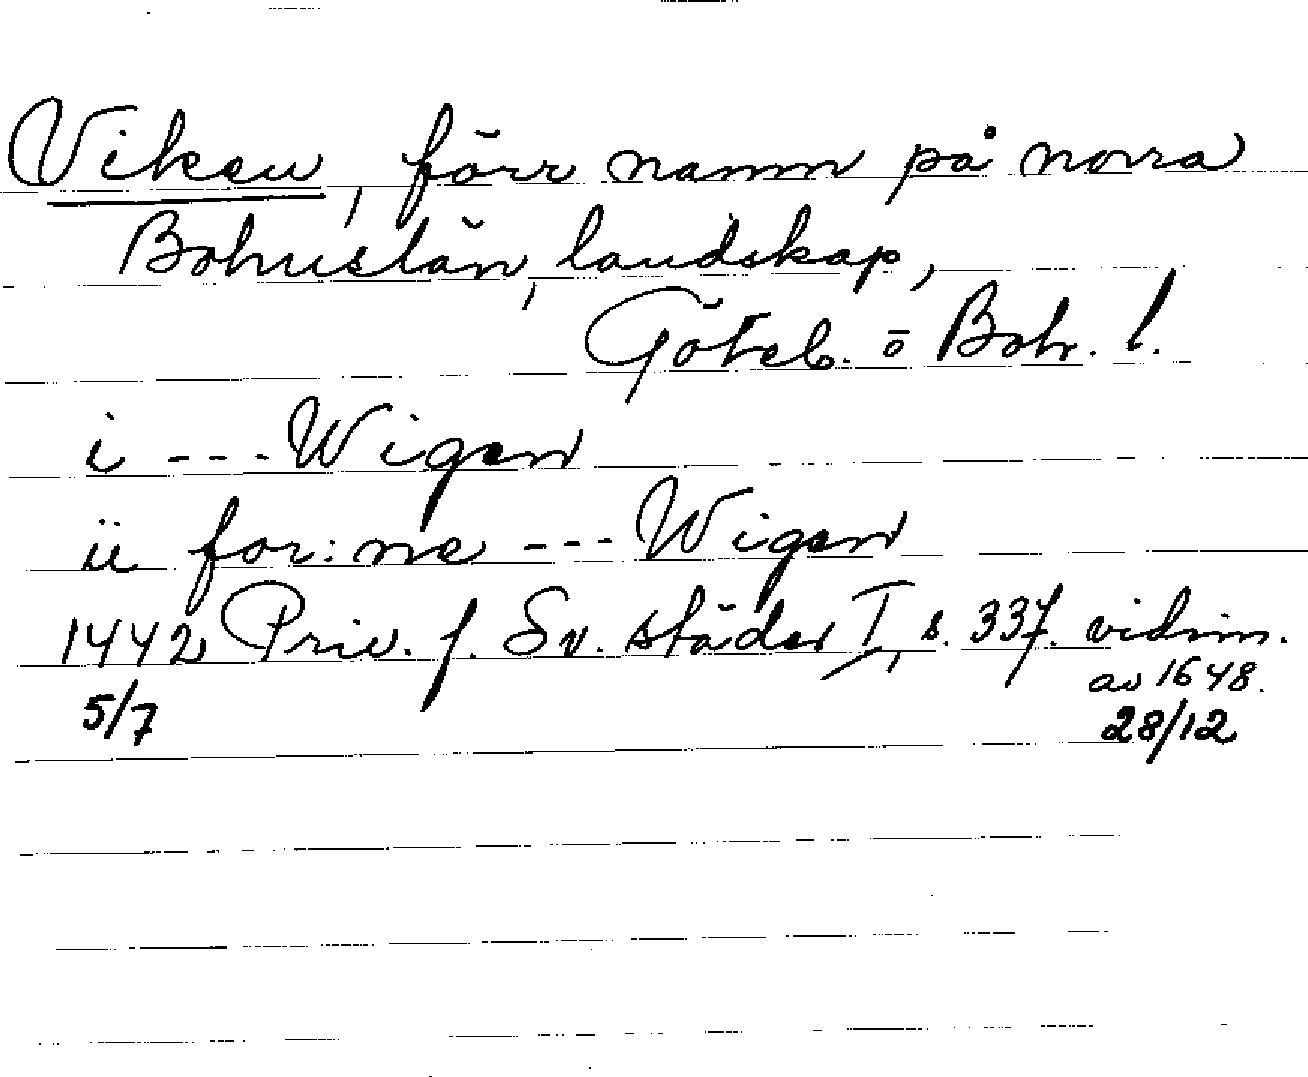 Viken, förr namn på norra
Bohuslän, landskap,
Göteb. o Boh. l.
i --- Wigen
ii for:ne --- Wigen
1442 Priv. f. Sv. städer I, s. 337. vidim.
av 1648.
5/7 28/12